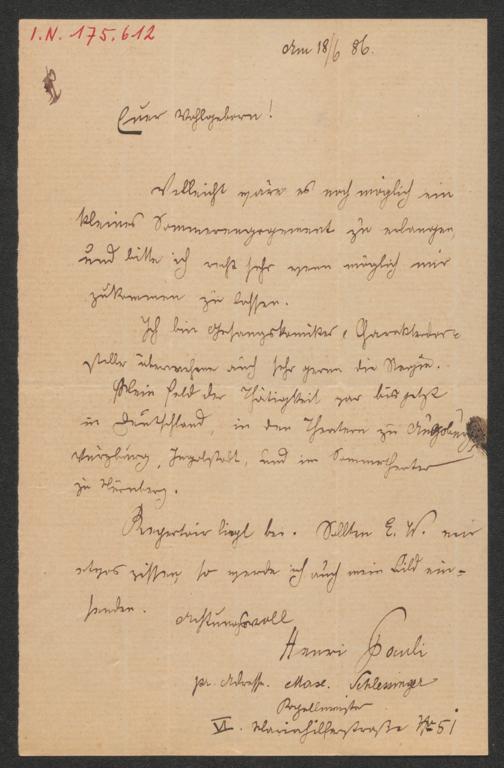 I.N. 175.612
Am 18/6 86.
Euer Wohlgeborn!
Vielleicht wäre es noch möglich ein
kleines Sommerengagement zu erlangen,
und bitte ich recht sehr wenn möglich mir
zukommen zu lassen.
Ich bin Gesangskomiker, Charakterdar-
steller übernehme auch sehr gerne die Regie.
Mein Feld der Thätigkeit war bis jetzt
in Deutschland, in den Theatern zu Augsburg
Würzburg, Ingolstadt, und im Sommertheater
zu Nürnberg.
Repertoir liegt bei. Sollten E. W. mir
etwas wissen, so werde ich auch mein Bild ein-
senden.
Achtungsvoll
Henri Pauli
pr. Adresse. Max. Schlesinger
Kapellmeister
VI. Mariahilferstraße Nr 51